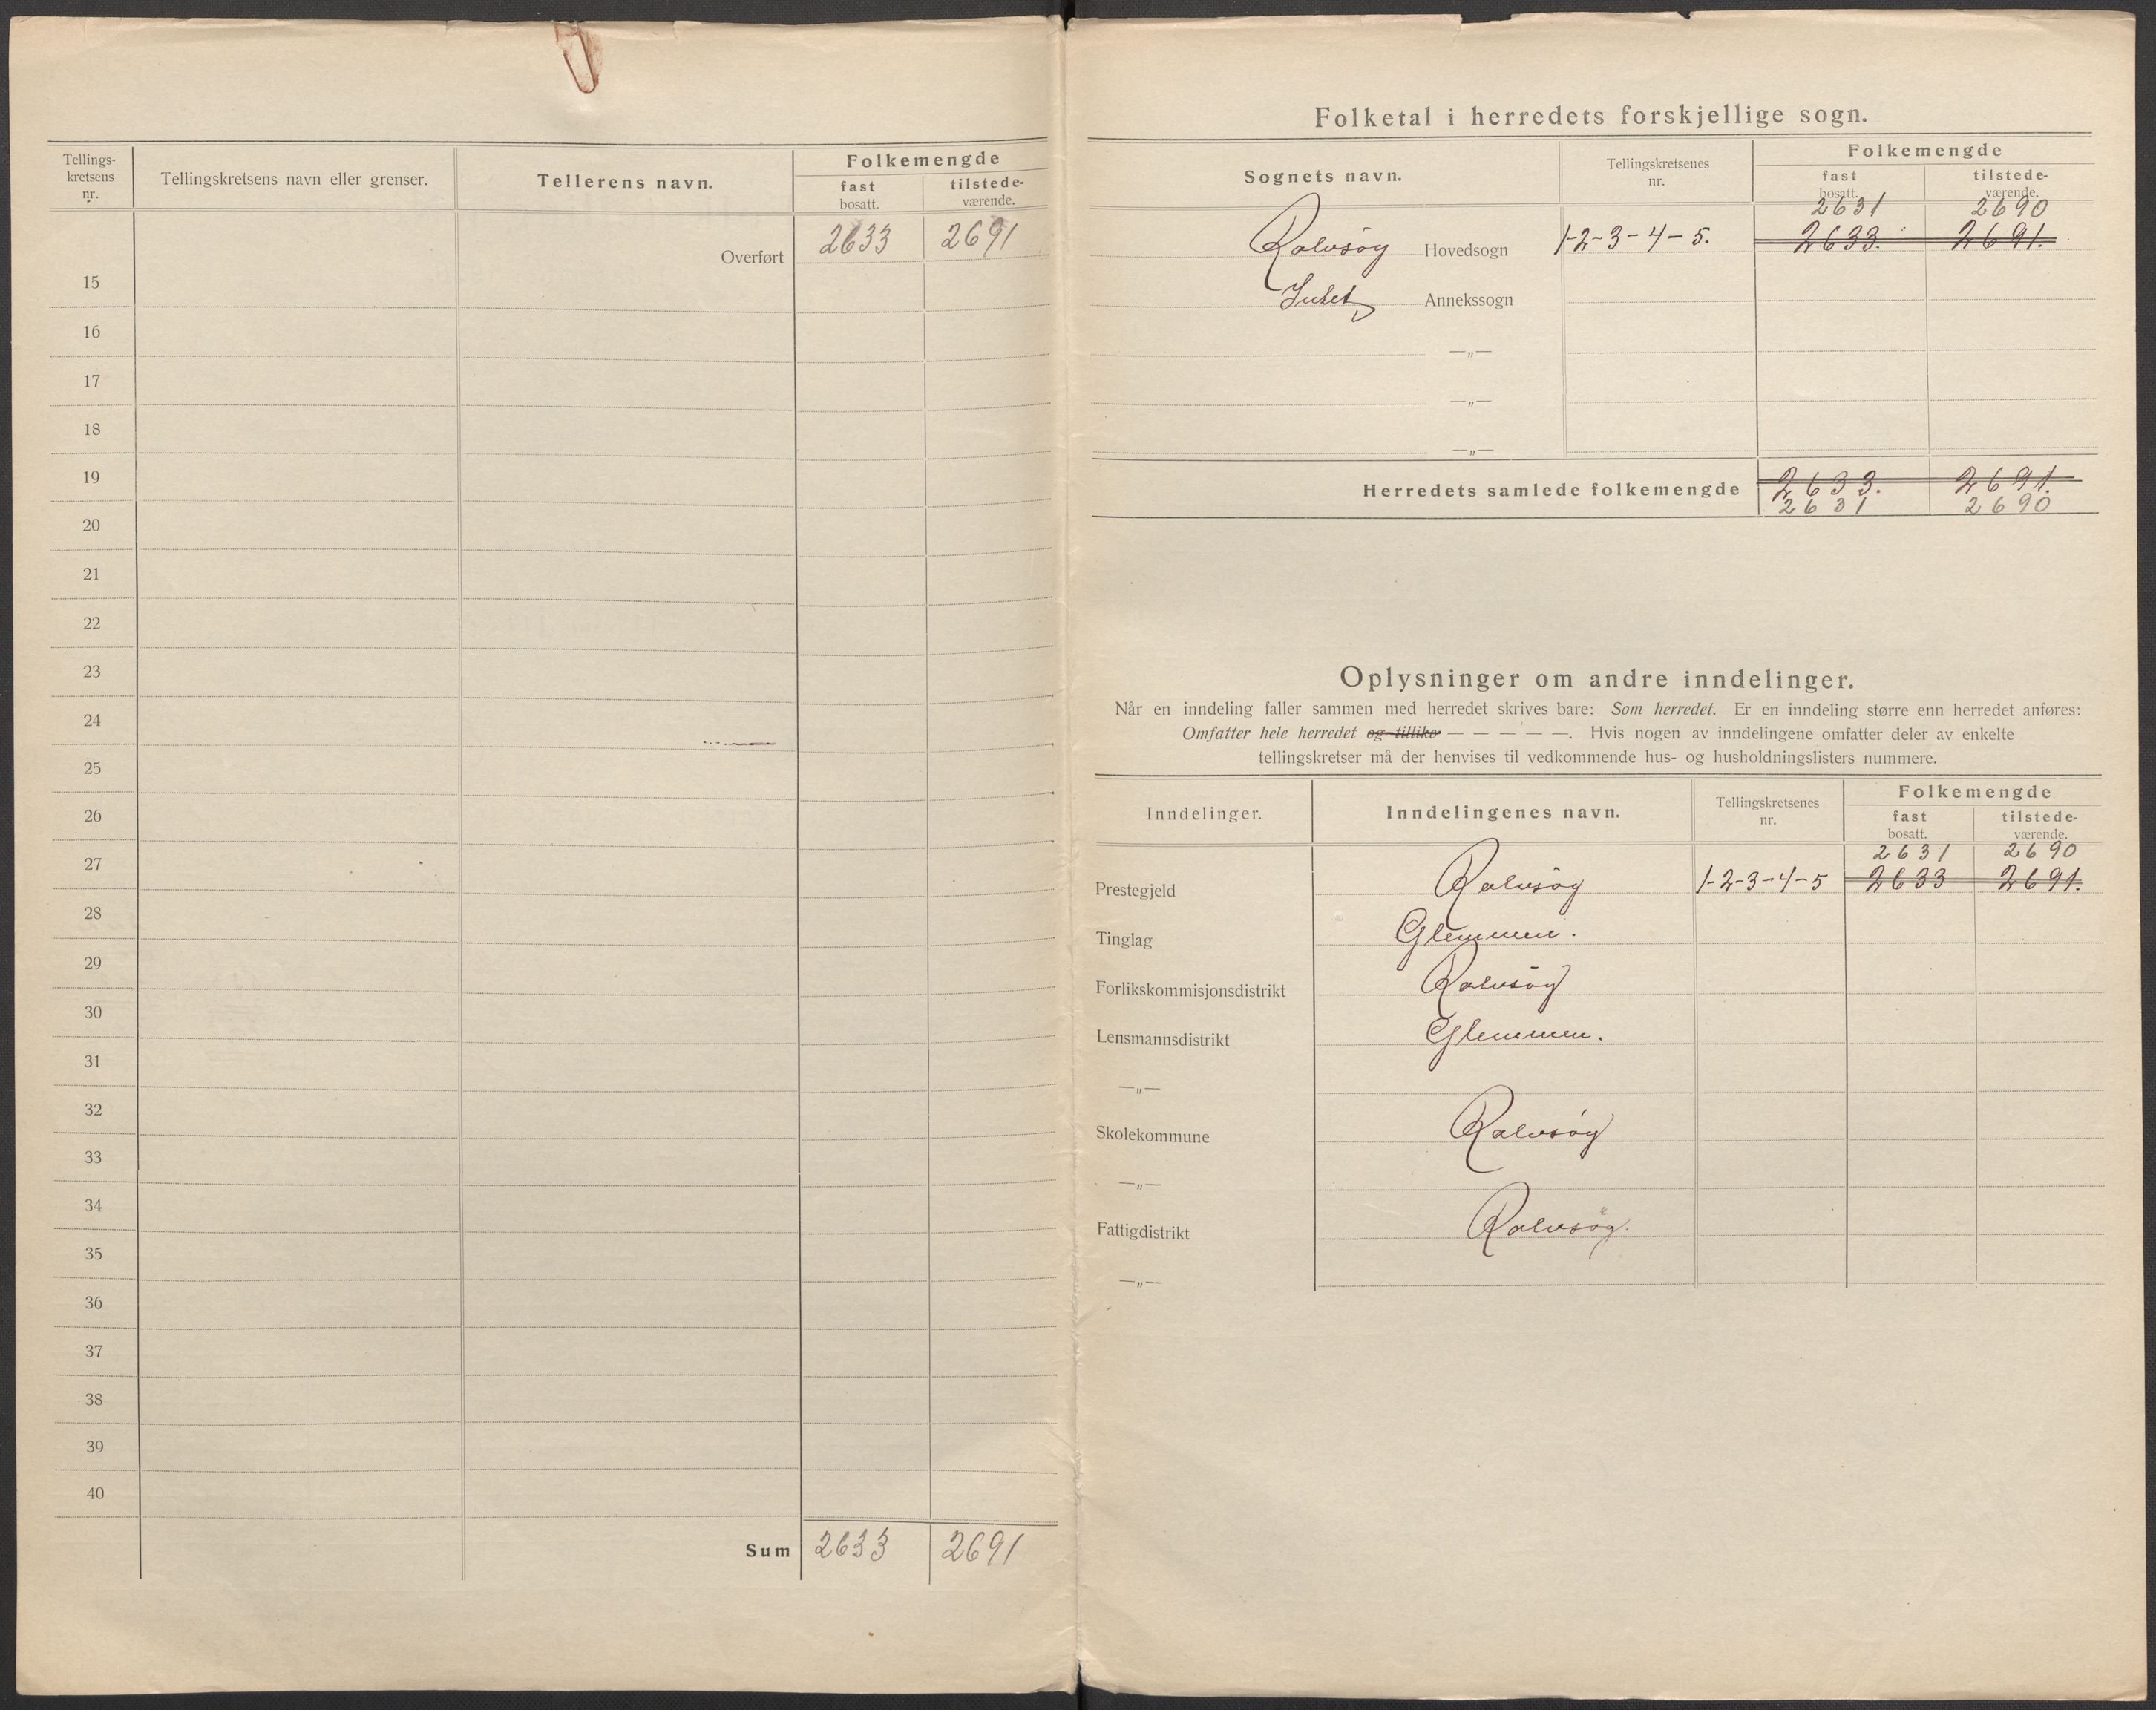 Tellings-
kretsens
nr.
Tellingskretsens navn eller grenser.
Tellerens navn.
Folkemengde
fast
bosatt.
tilstede-
værende.
Overført 2633 2691
15
16
17
18
19
20
21
22
23
24
25
26
27
28
29
30
31
32
33
34
35
36
37
38
39
40
Sum 2633 2691
Folketal i herredets forskjellige sogn.
Sognets navn.
Tellingskretsenes
nr.
Folkemengde
fast
bosatt.
tilstede-
værende.
2631 2690
Rolvsøy Hovedsogn 1-2-3-4-5. 2633. 2691.
Intet Annekssogn
—„—
—„—
—„—
Herredets samlede folkemengde 2633. 2691.
2631 2690
Oplysninger om andre inndelinger.
Når en inndeling faller sammen med herredet skrives bare: Som herredet. Er en inndeling større enn herredet anføres:
Omfatter hele herredet og tillike — — — — —. Hvis nogen av inndelingene omfatter deler av enkelte
tellingskretser må der henvises til vedkommende hus- og husholdningslisters nummere.
Inndelinger.
Inndelingenes navn.
Tellingskretsenes
nr.
Folkemengde
fast
bosatt.
tilstede-
værende.
2631 2690
Prestegjeld Rolvsøy 1-2-3-4-5 2633 2691.
Tinglag Glemmen.
Forlikskommisjonsdistrikt Rolvsøy
Lensmannsdistrikt Glemmen.
—„—
Skolekommune Rolvsøy
—„—
Fattigdistrikt Rolvsøy.
—„—